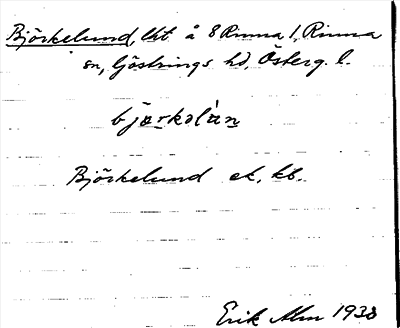 Björkelund, lht å 8 Rinna 1, Rinna
sn, Göstrings hd, Österg. l.
bjærkəlún
Björkelund ek. kb.
Erik Alm 1938